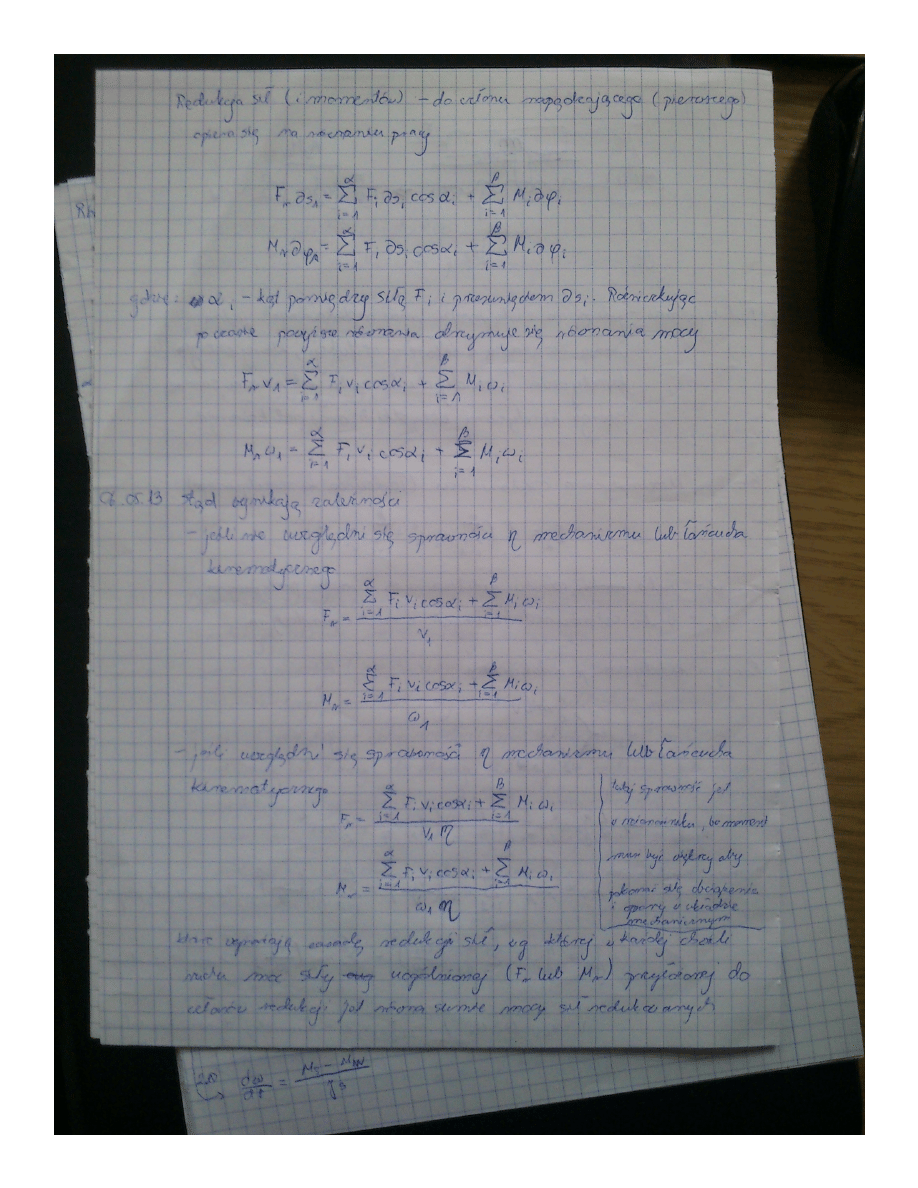 Redukcja sił (i momentów) – do członu napędzającego (pierwszego)
opiera się na równaniu pracy
F_r ∂s_1 = Σ_{i=1}^{α} F_i ∂s_i cos α_i + Σ_{i=1}^{β} M_i ∂φ_i
M_r ∂φ_1 = Σ_{i=1}^{α} F_i ∂s_i cos α_i + Σ_{i=1}^{β} M_i ∂φ_i
gdzie: α_i – kąt pomiędzy siłą F_i i przesunięciem ∂s_i. Różniczkując
po czasie powyższe równania otrzymuje się równania mocy
F_r v_1 = Σ_{i=1}^{α} F_i v_i cos α_i + Σ_{i=1}^{β} M_i ω_i
M_r ω_1 = Σ_{i=1}^{α} F_i v_i cos α_i + Σ_{i=1}^{β} M_i ω_i
Stąd wynikają zależności
– jeśli nie uwzględni się sprawności η mechanizmu lub łańcucha
kinematycznego
F_r = (Σ_{i=1}^{α} F_i v_i cos α_i + Σ_{i=1}^{β} M_i ω_i) / v_1
M_r = (Σ_{i=1}^{α} F_i v_i cos α_i + Σ_{i=1}^{β} M_i ω_i) / ω_1
– jeśli uwzględni się sprawności η mechanizmu lub łańcucha
kinematycznego
F_r = (Σ_{i=1}^{α} F_i v_i cos α_i + Σ_{i=1}^{β} M_i ω_i) / v_1 η
M_r = (Σ_{i=1}^{α} F_i v_i cos α_i + Σ_{i=1}^{β} M_i ω_i) / ω_1 η
tutaj sprawność jest
w mianowniku, bo moment
musi być większy aby
pokonać siłę obciążenia
i opory w układzie
mechanicznym
które wyrażają zasadę redukcji sił, wg której w każdej chwili
ruchu moc siły uogólnionej (F_r lub M_r) przyłożonej do
członu redukcji jest równa sumie mocy sił redukowanych
dω/dt =